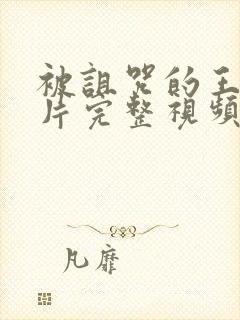 被詛咒的王
片完整視頻
凡靡